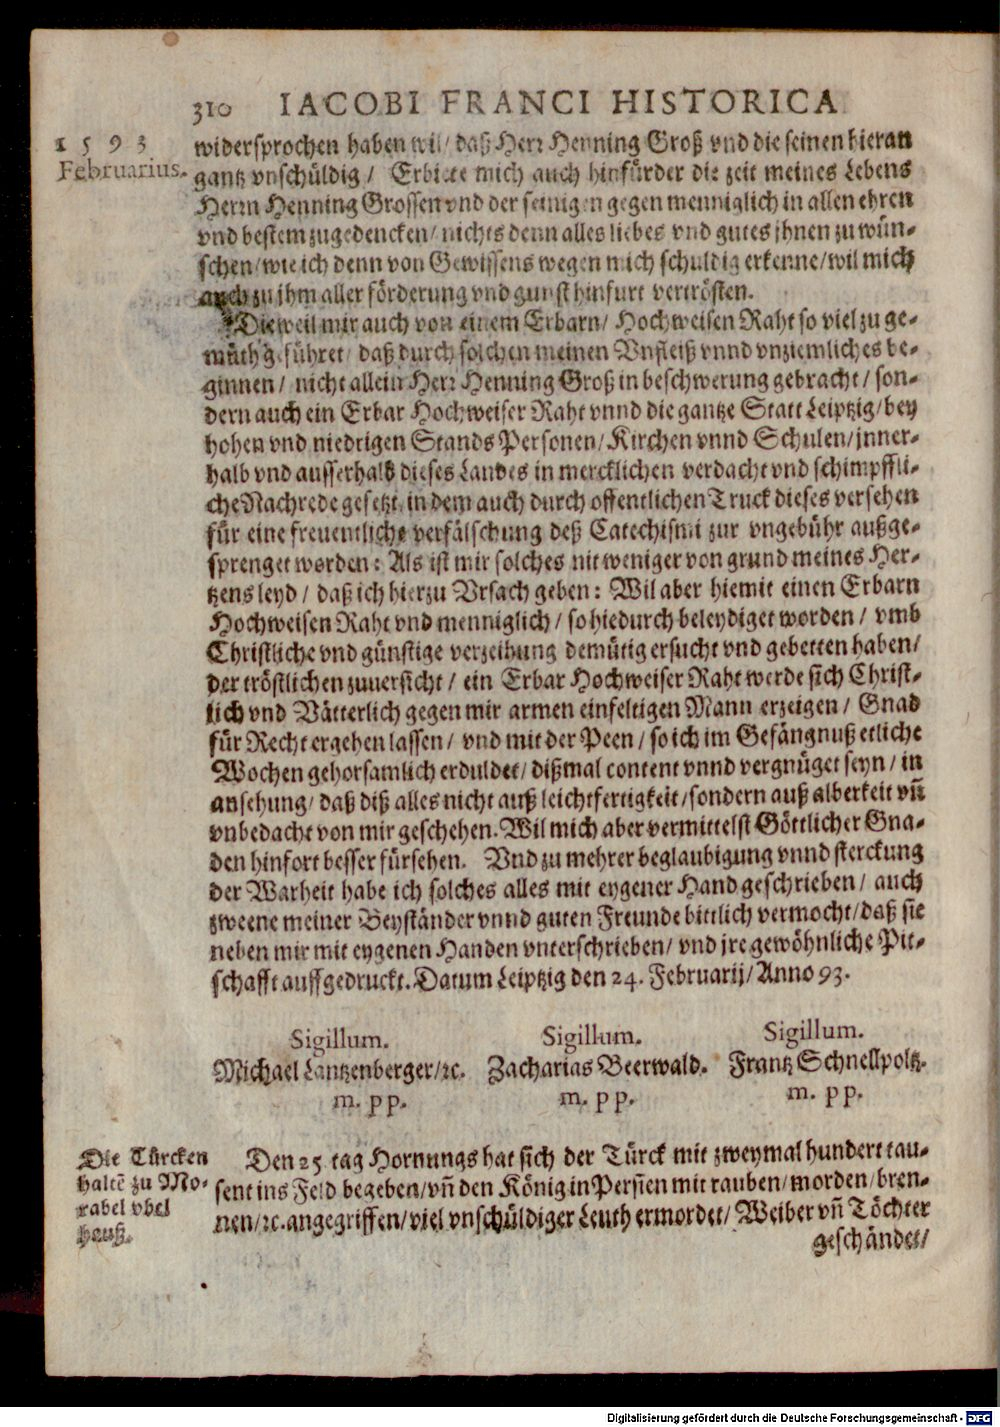 310 IACOBI FRANCI HISTORICA
1593
Februarius.
widersprochen haben wil/ daß Herr Henning Groß vnd die seinen hieran
gantz vnschüldig / Erbiete mich auch hinfürder die zeit meines Lebens
Herrn Henning Grossen vnd der seinigen gegen menniglich in allen ehren
vnd bestem zugedencken/ nichts denn alles liebes vnd gutes jhnen zu wün-
schen/ wie ich denn von Gewissens wegen mich schuldig erkenne/ wil mich
auch zu jhm aller förderung vnd gunst hinfurt vertrösten.
Dieweil mir auch von einem Erbarn/ Hochweisen Raht so viel zu ge-
müth geführet/ daß durch solchen meinen Vnfleiß vnnd vnziemliches be-
ginnen / nicht allein Herr Henning Groß in beschwerung gebracht / son-
dern auch ein Erbar Hochweiser Raht vnnd die gantze Statt Leiptzig/ bey
hohen vnd niedrigen Stands Personen/ Kirchen vnnd Schulen/ jnner-
halb vnd ausserhalb dieses Landes in mercklichen verdacht vnd schimpffli-
che Nachrede gesetzt, in dem auch durch offentlichen Truck dieses versehen
für eine freuentliche verfälschung deß Catechismi zur vngebühr außge-
sprenget worden: Als ist mir solches nit weniger von grund meines Her-
tzens leyd / daß ich hierzu Vrsach geben: Wil aber hiemit einen Erbarn
Hochweisen Raht vnd menniglich / so hiedurch beleydiget worden / vmb
Christliche vnd günstige verzeihung demütig ersucht vnd gebetten haben/
der tröstlichen zuuersicht / ein Erbar Hochweiser Raht werde sich Christ-
lich vnd Vätterlich gegen mir armen einfeltigen Mann erzeigen / Gnad
für Recht ergehen lassen / vnd mit der Peen / so ich im Gefängnuß etliche
Wochen gehorsamlich erduldet/ dißmal content vnnd vergnüget seyn / in
ansehung/ daß diß alles nicht auß leichtfertigkeit /sondern auß alberkeit vñ
vnbedacht von mir geschehen. Wil mich aber vermittelst Göttlicher Gna-
den hinfort besser fürsehen. Vnd zu mehrer beglaubigung vnnd sterckung
der Warheit habe ich solches alles mit eygener Hand geschrieben / auch
zweene meiner Beyständer vnnd guten Freunde bittlich vermocht/ daß sie
neben mir mit eygenen Handen vnterschrieben/ vnd jre gewöhnliche Pit-
schafft auffgedruckt. Datum Leiptzig den 24. Februarij/ Anno 93.
Sigillum. Sigillum. Sigillum.
Michael Lantzenberger/ꝛc. Zacharias Beerwald. Frantz Schnellpoltz.
m. pp. m. pp. m. pp.
Die Türcken
haltē zu Mo-
rabel vbel
hauß.
Den 25. tag Hornungs hat sich der Türck mit zweymal hundert tau-
sent ins Feld begeben/ vñ den König in Persien mit rauben/ morden/ bren-
nen/ꝛc. angegriffen/ viel vnschüldiger Leuth ermordet/ Weiber vñ Töchter
geschändet/
Digitalisierung gefördert durch die Deutsche Forschungsgemeinschaft - DFG